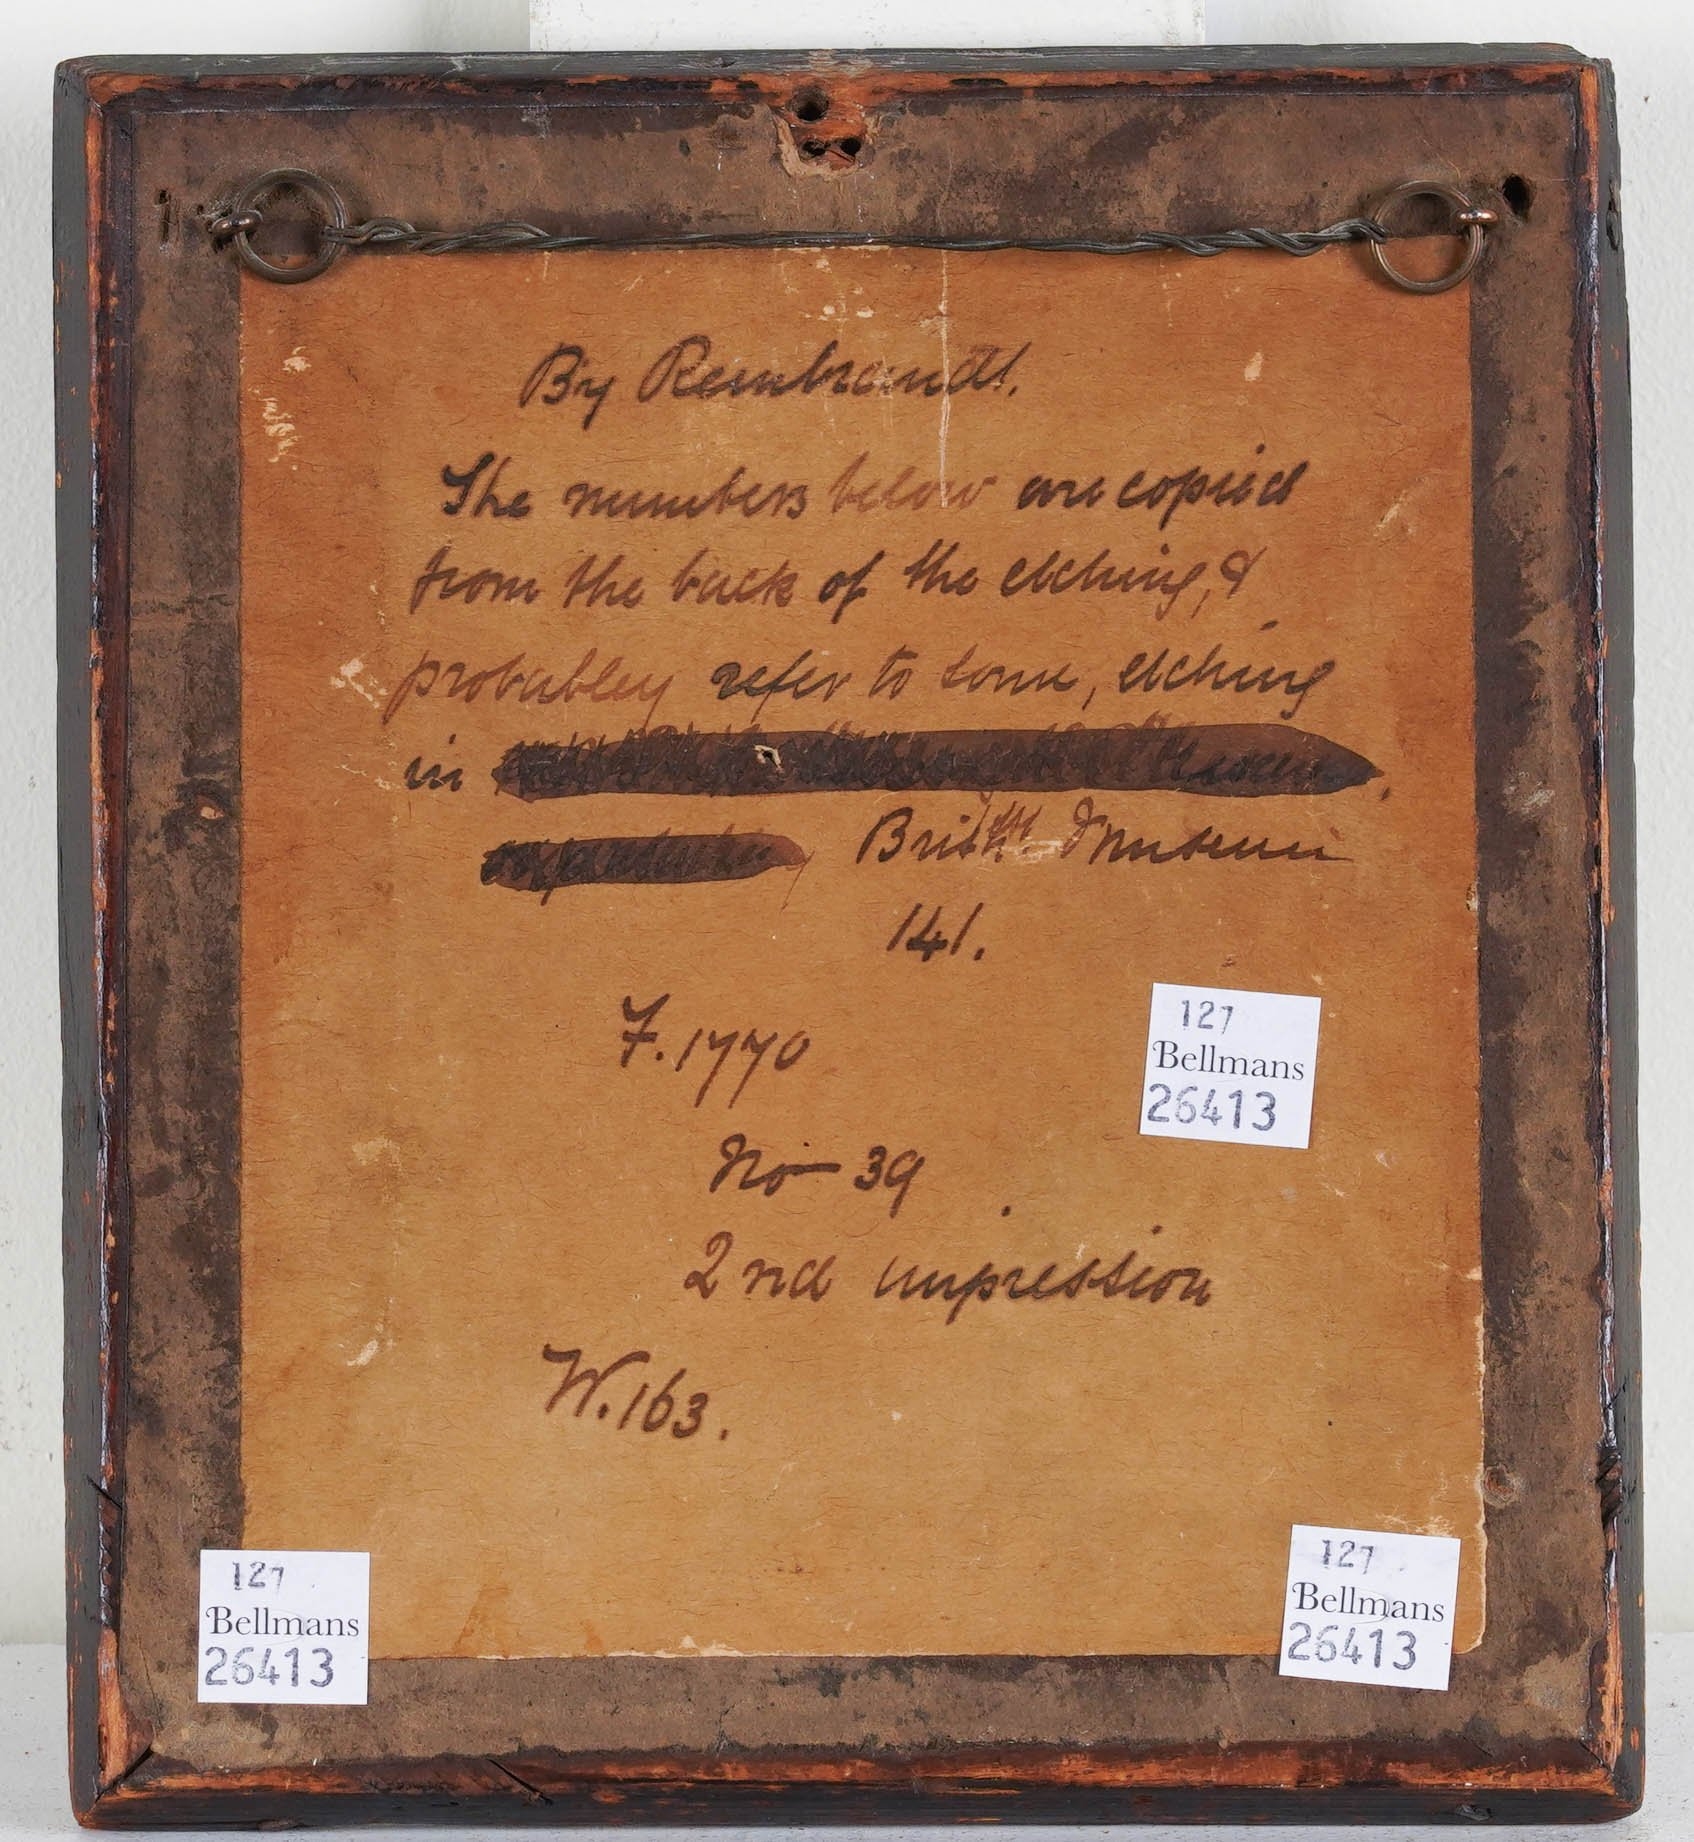 By Rembrandt.
The numbers below are copied
from the back of the etching, &
probably refer to some, etching
in
Brit. Museum
141.
F. 1770
No 39
2nd impression
W. 163.
127
Bellmans
26413
127
Bellmans
26413
127
Bellmans
26413